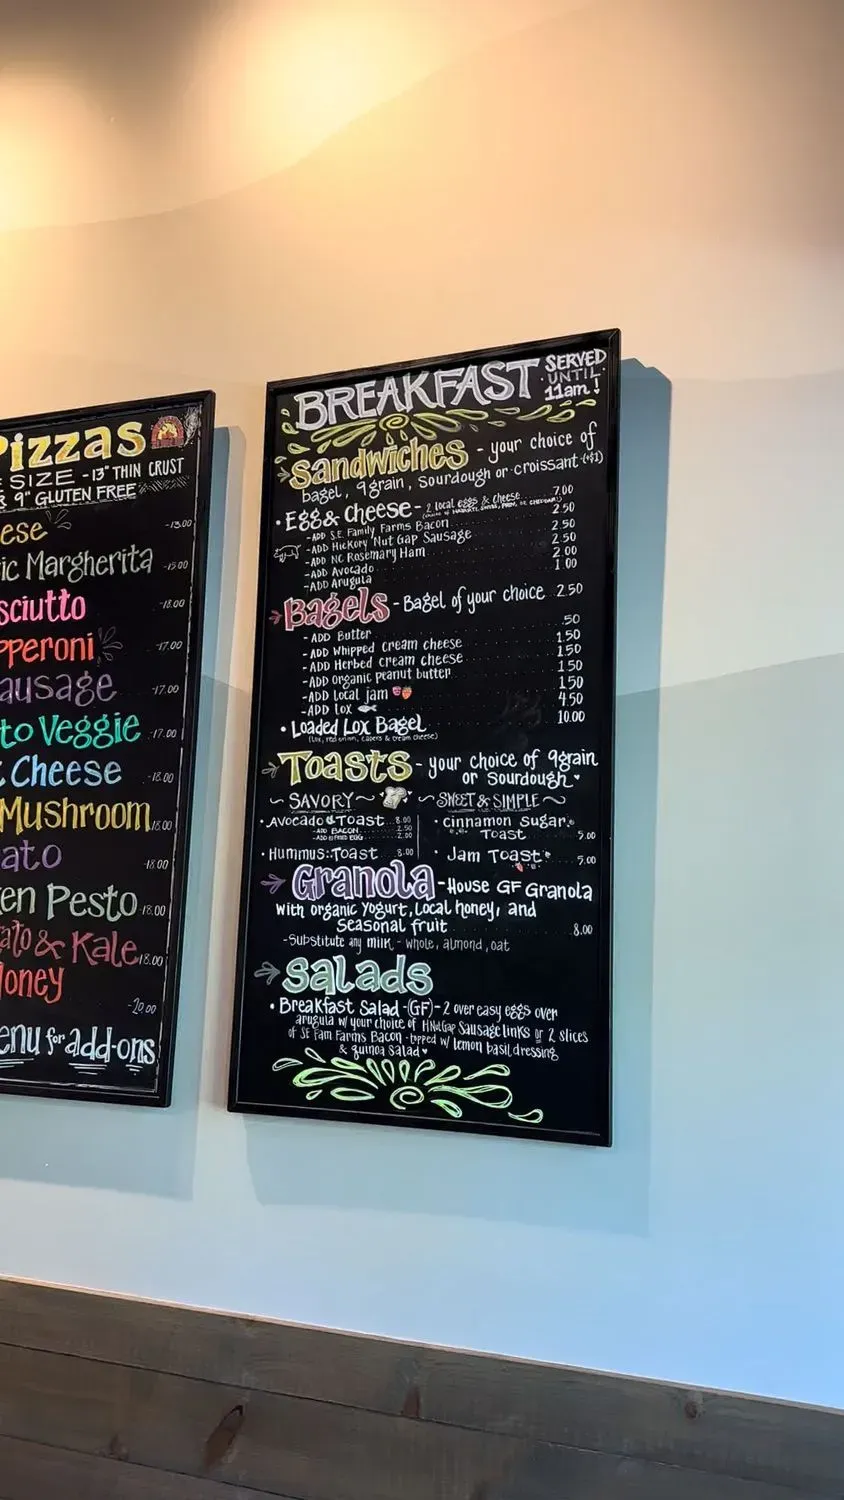 Pizzas
SIZE - 13" THIN CRUST
& 9" GLUTEN FREE
-13.00
ic Margherita -15.00
-18.00
-17.00
-17.00
to Veggie -17.00
Cheese -18.00
Mushroom 18.00
-18.00
en Pesto -18.00
& Kale 18.00
-20.00
for add-ons
BREAKFAST SERVED
UNTIL
11am!
Sandwiches - your choice of
bagel, 9grain, sourdough or croissant (+$1)
• Egg & Cheese - 2 local eggs & cheese 7.00
-ADD S.E. Family Farms Bacon 2.50
-ADD Hickory Nut Gap Sausage 2.50
-ADD NC Rosemary Ham 2.50
-ADD Avocado 2.00
-ADD Arugula 1.00
Bagels - Bagel of your choice 2.50
-ADD Butter .50
-ADD Whipped cream cheese 1.50
-ADD Herbed cream cheese 1.50
-ADD organic peanut butter 1.50
-ADD Local jam 1.50
-ADD Lox 4.50
• Loaded Lox Bagel 10.00
(Lox, red onion, capers & cream cheese)
Toasts - your choice of 9grain
or sourdough
~ SAVORY ~
• Avocado Toast 8.00
-ADD BACON 2.50
-ADD FRIED EGG 2.00
• Hummus Toast 8.00
~ SWEET & SIMPLE ~
• cinnamon sugar
Toast 5.00
• Jam Toast 5.00
Granola - House GF Granola
with organic yogurt, local honey, and
seasonal fruit 8.00
-Substitute any milk - whole, almond, oat
Salads
• Breakfast Salad - (GF) - 2 over easy eggs over
arugula w/ your choice of HNutGap Sausage links or 2 slices
of SE Fam Farms Bacon - topped w/ lemon basil dressing
& quinoa salad ♥